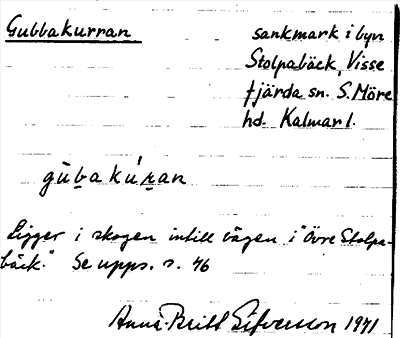 Gubbakurran
sankmark i byn
Stolpabäck, Visse
fjärda sn. S. Möre
hd. Kalmar l.
gùb̲a kúr̲an
Ligger i skogen intill vägen i "Övre Stolpa-
bäck." Se upps. s. 76
Anna-Britt Sifversson 1971